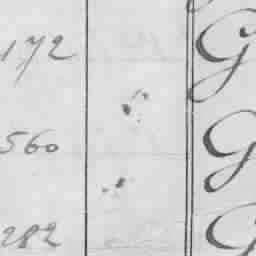 172 G
560 G
282 G